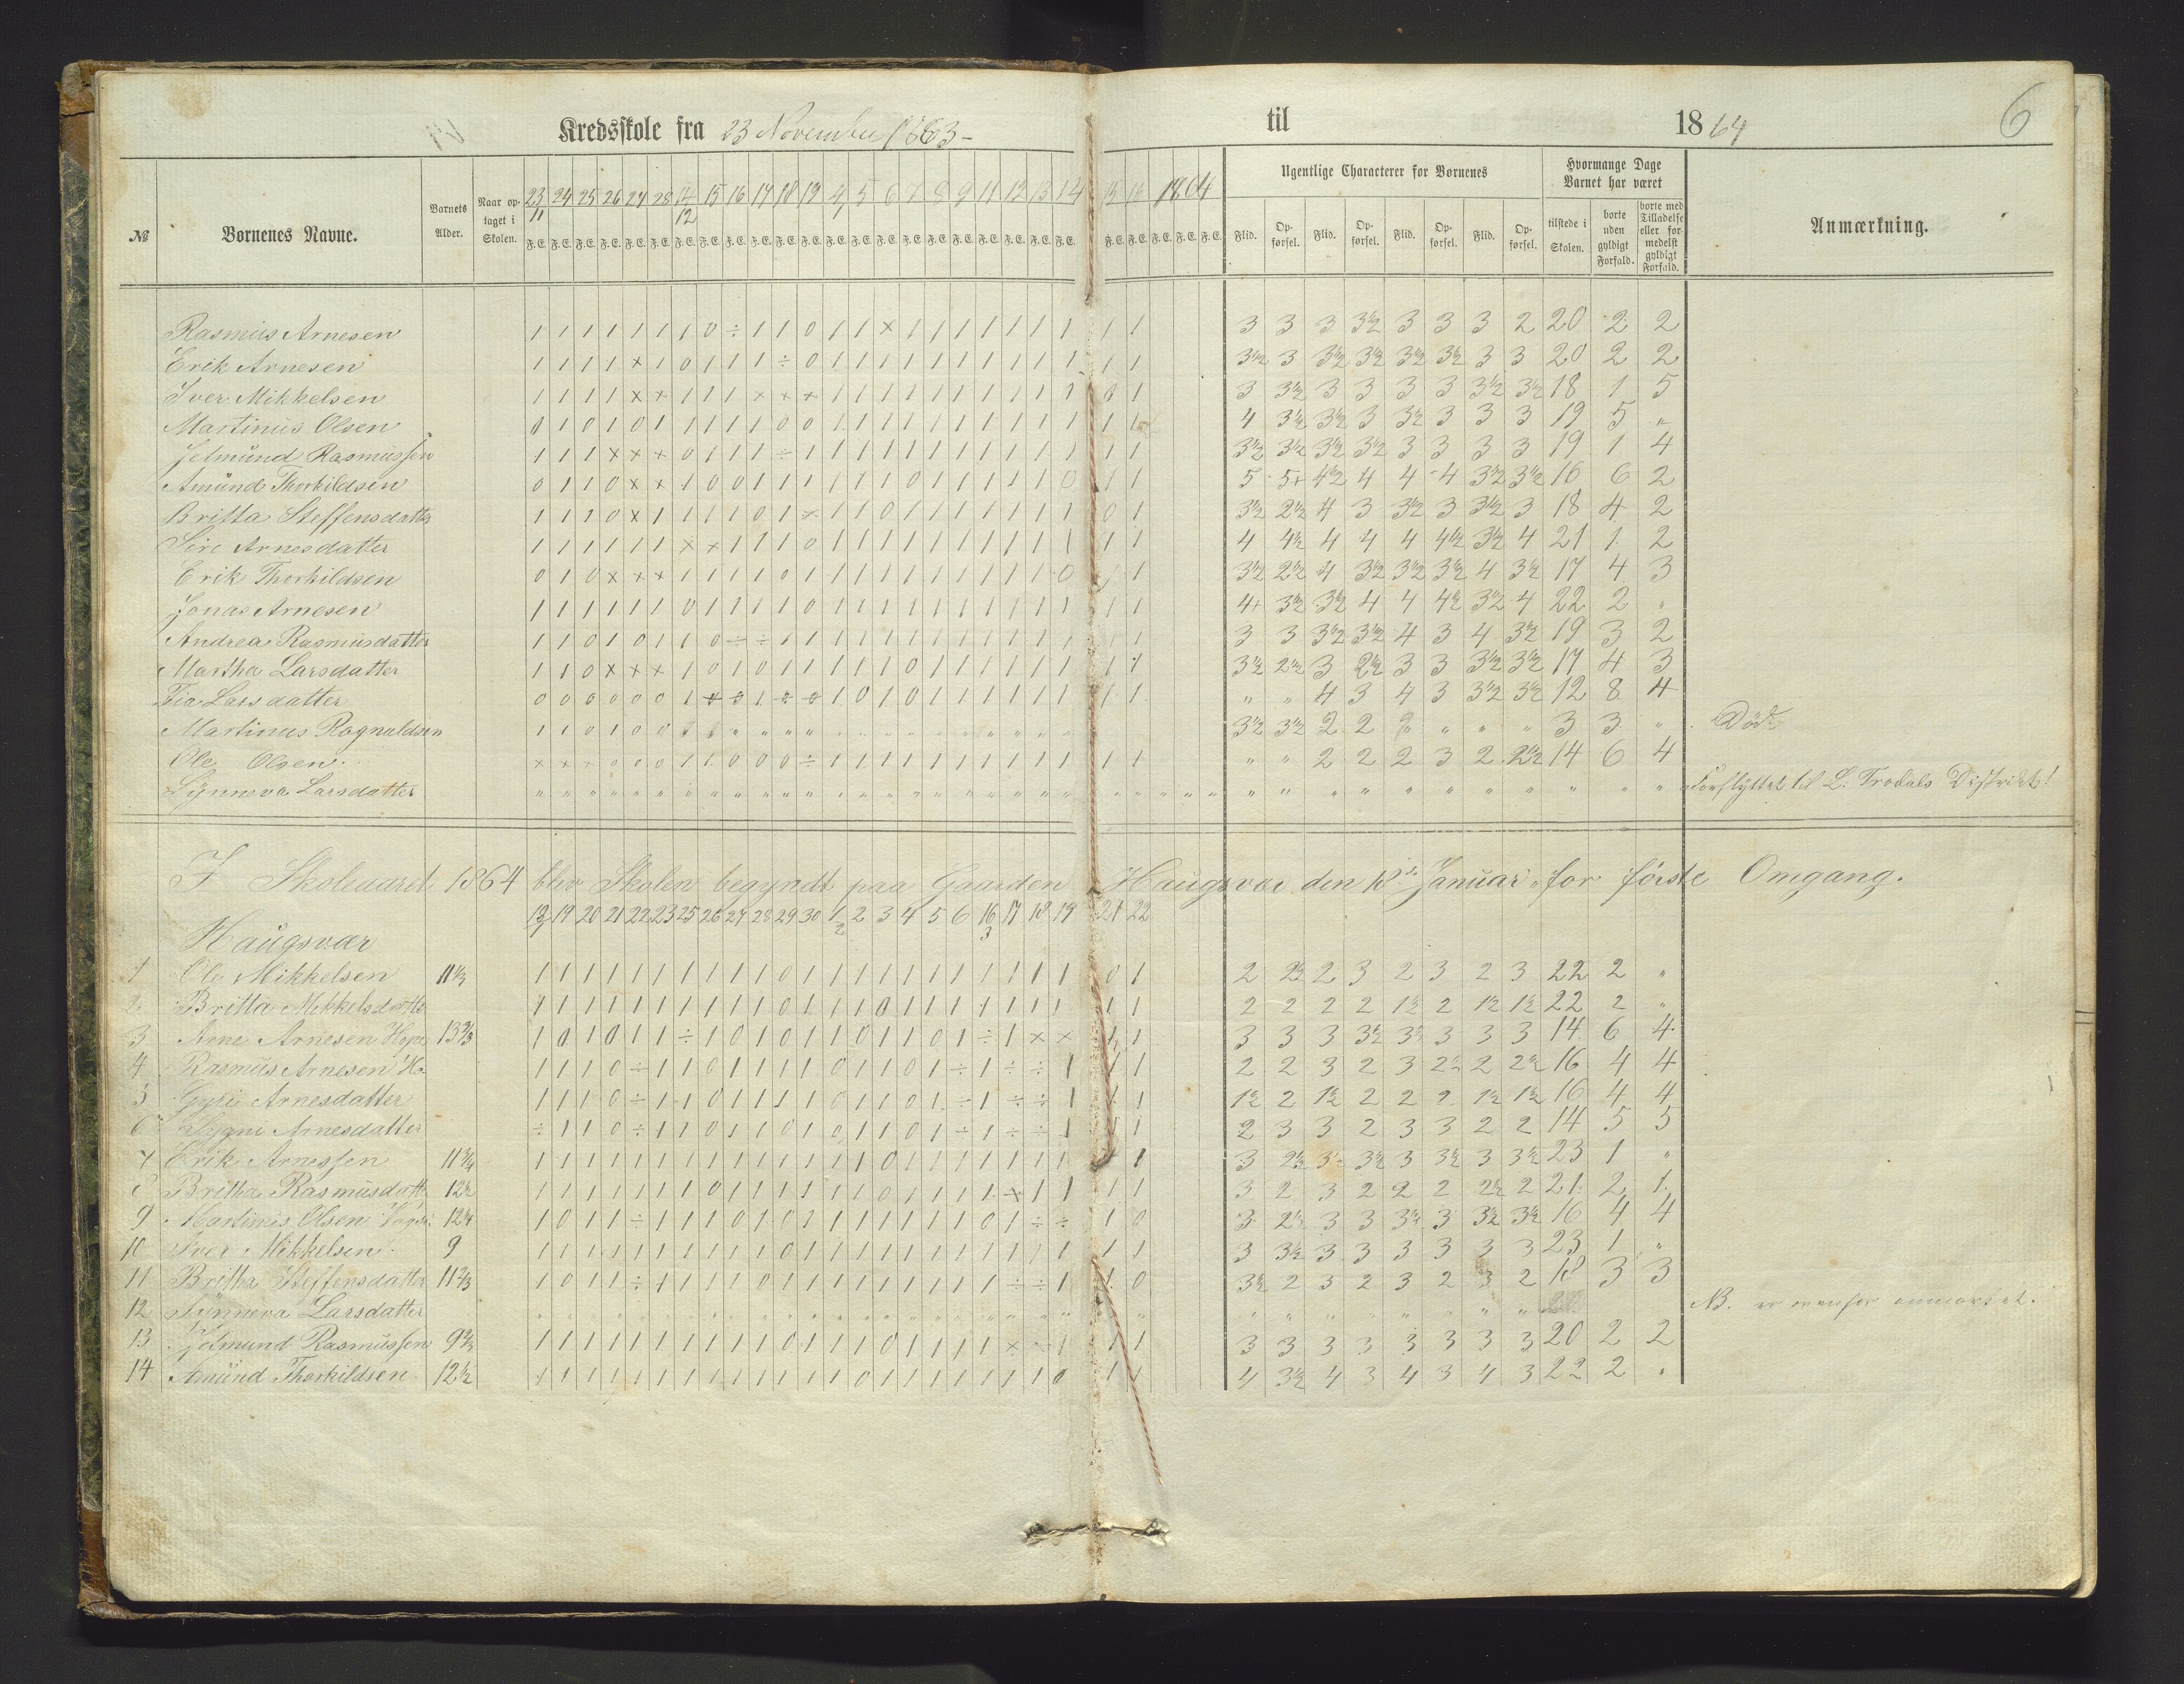 Kredsskole fra 23 November 1863- til 1864 6
№ Børnenes Navne. Barnets Alder. Naar optaget i Skolen. 23/11 24 25 26 27 28 14/12 15 16 17 18 19 4/1 5 6 7 8 9 11 12 13 14 15 16 1864 Ugentlige Characterer for Børnenes Hvormange Dage Barnet har været Anmærkning.
F.E. F.E. F.E. F.E. F.E. F.E. F.E. F.E. F.E. F.E. F.E. F.E. F.E. F.E. F.E. F.E. F.E. F.E. F.E. F.E. F.E. F.E. F.E. F.E. F.E. F.E. F.E. Flid. Opførsel. Flid. Opførsel. Flid. Opførsel. Flid. Opførsel. tilstede i Skolen. borte uden gyldigt Forfald. borte med Tilladelse eller formedelst gyldigt Forfald.
Rasmus Arnesen 1 1 1 1 1 1 1 0 ÷ 1 1 0 1 1 × 1 1 1 1 1 1 1 1 1 3 3 3 3½ 3 3 3 2 20 2 2
Erik Arnesen 1 1 1 1 × 1 0 1 1 1 ÷ 0 1 1 1 1 1 1 1 1 1 1 1 1 3½ 3 3½ 3½ 3½ 3½ 3 3 20 2 2
Iver Mikkelsen 1 1 1 1 × × 1 1 1 × × × 1 1 1 1 1 1 1 1 1 1 0 1 3 3½ 3 3 3 3 3½ 3½ 18 1 5
Martinus Olsen 0 1 0 1 0 1 1 1 1 1 0 0 1 1 1 1 1 1 1 1 1 1 1 1 4 3½ 3½ 3 3½ 3 3 3 19 5 "
Jetmund Rasmussen 1 1 1 × × × 0 1 1 1 ÷ 1 1 1 1 1 1 1 1 1 1 1 1 1 3½ 3½ 3½ 3½ 3 3 3 3 19 1 4
Amund Thorkildsen 0 1 1 0 × × 1 0 0 1 1 1 1 1 1 0 1 1 1 1 1 0 1 1 5 5+ 4½ 4 4 4 3½ 3½ 16 6 2
Britta Steffensdatter 1 1 1 0 × 1 1 1 1 0 1 × 1 1 0 1 1 1 1 1 1 1 0 1 3½ 2½ 4 3 3½ 3 3½ 3 18 4 2
Sire Arnesdatter 1 1 1 1 1 1 × × 1 1 1 0 1 1 1 1 1 1 1 1 1 1 1 1 4 4½ 4 4 4 4½ 3½ 4 21 1 2
Erik Thorkildsen 0 1 0 × × × 1 1 1 1 0 1 1 1 1 1 1 1 1 1 1 0 1 1 3½ 2½ 4 3½ 3½ 3½ 4 3½ 17 4 3
Jonas Arnesen 1 1 1 1 1 1 0 1 1 1 1 0 1 1 1 1 1 1 1 1 1 1 1 1 4+ 3½ 3½ 4 4 4½ 3½ 4 22 2 "
Andrea Rasmusdatter 1 1 0 1 0 1 1 0 ÷ ÷ 1 1 1 1 1 1 1 1 1 1 1 1 1 1 3 3 3½ 3½ 4 3 4 3½ 19 3 2
Martha Larsdatter 1 1 0 × × × 1 0 1 0 1 1 1 1 1 0 1 1 1 1 1 1 1 1 3½ 2½ 3 2½ 3 3 3½ 3½ 17 4 3
Larsdatter 0 0 0 0 0 0 1 1 0 1 0 1 1 1 1 1 1 1 1 " " 4 3 4 3 3½ 3½ 12 8 4
Martinus Ragnaldsen 1 1 0 1 0 0 " " " " " " " " " " " " " " " " 3½ 3½ 2 2 " " " " 3 3 " Död
Ole Olsen × × × 0 0 0 1 1 0 0 0 ÷ 1 1 1 1 1 1 1 1 1 1 1 1 " " 2 2 2 3 2 2½ 14 6 4
Synneva Larsdatter " " " " " " " " " " " " " " " " " " " " " " " " " " " " " " " " " " " " " " Forflyttet til L. Trodals Distrikt!
I Skoleaaret 1864 blev Skolen begyndt paa Gaarden Haugsvær den 18de Januar for förste Omgang.
18/1 19 20 21 22 23 25 26 27 28 29 30 1/2 2 3 4 5 6 16/3 17 18 19 21 22
Haugsvær
1 Ole Mikkelsen 11⅓ 1 1 1 1 1 1 1 1 1 1 0 1 1 1 1 1 1 1 1 1 1 1 0 1 2 2½ 2 3 2 3 2 3 22 2 "
2 Britta Mikkelsdatter 1 1 1 1 1 1 1 1 1 1 0 1 1 1 0 1 1 1 1 1 1 1 1 1 2 2 2 2 1½ 2 1½ 1½ 22 2 "
3 Arne Arnesen Hope 13⅔ 1 0 1 0 1 1 ÷ 1 0 1 0 1 1 0 1 1 0 1 ÷ 1 × × 1 1 3 3 3 3½ 3½ 3 3 3 14 6 4
4 Rasmus Arnesen Ho. 1 1 1 0 ÷ 1 1 0 1 1 1 1 0 1 1 0 1 ÷ 1 ÷ ÷ 1 1 1 2 2 3 2 3 2½ 2 2½ 16 4 4
5 Gyri Arnesdatter 1 1 1 0 ÷ 1 1 0 1 1 1 1 0 1 1 0 1 ÷ 1 ÷ ÷ 1 1 1 1½ 2 1½ 2 2 2 1½ 1½ 16 4 4
6 Arnesdatter ÷ 1 1 0 ÷ 1 1 0 1 1 0 1 0 1 1 0 1 ÷ 1 ÷ ÷ 1 1 1 2 3 3 2 3 3 2 2 14 5 5
7 Erik Arnessen 11¾ 1 1 1 1 1 1 1 1 1 1 1 1 1 1 0 1 1 1 1 1 1 1 1 3 2½ 3½ 3½ 3 3½ 3 3½ 23 1 "
8 Britha Rasmusdatt 12½ 1 1 1 1 1 1 1 0 1 1 1 1 1 1 0 1 1 1 1 × 1 1 1 1 3 2 3 2 2 2 2½ 2 21 2 1
9 Martinus Olsen 12¼ 1 0 1 1 ÷ 1 1 1 0 1 0 1 1 1 1 1 1 1 0 1 ÷ ÷ 1 0 3 2½ 3 3 3½ 3 3½ 3½ 16 4 4
10 Iver Mikkelsen 9 1 1 1 1 1 1 1 1 1 1 0 1 1 1 1 1 1 1 1 1 1 1 1 1 3 3½ 3 3 3 3 3 3 23 1 "
11 Britha Steffensdatter 11⅔ 1 0 1 1 ÷ 1 1 1 1 0 1 1 1 1 1 1 1 1 1 ÷ ÷ 1 1 0 3½ 2 3 2 3 2 3 2 18 3 3
12 Synneva Larsdatter " " " " " " " " " " " " " " " " " " " " " " " " " " " " " " NB. er ovenfor anmærket.
13 Jetmund Rasmussen 9¾ 1 1 1 1 1 1 1 1 1 1 0 1 1 1 0 1 1 1 1 × × 1 1 1 3 3 3 3 3 3 3 3 20 2 2
14 Amund Thorkildsen 12½ 1 1 1 1 1 1 1 1 1 1 1 1 1 0 1 1 1 1 1 1 1 0 1 1 4 3½ 4 3 4 3 4 3 22 2 "